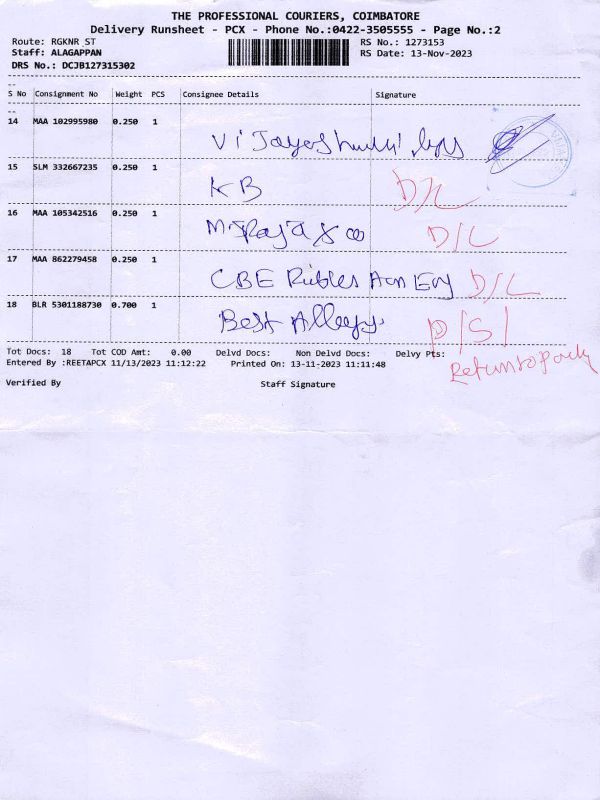 THE PROFESSIONAL COURIERS, COIMBATORE
Delivery Runsheet - PCX - Phone No.:0422-3505555 - Page No.:2
Route: RGKNR ST RS No.: 1273153
Staff: ALAGAPPAN RS Date: 13-Nov-2023
DRS No.: DCJB127315302
S No Consignment No Weight PCS Consignee Details Signature
14 MAA 102995980 0.250 1
15 SLM 332667235 0.250 1
KB D/L
16 MAA 105342516 0.250 1
D/L
17 MAA 862279458 0.250 1
CBE D/L
18 BLR 5301188730 0.700 1
Best Alleys D/S
Tot Docs: 18 Tot COD Amt: 0.00 Delvd Docs: Non Delvd Docs: Delvy Pts:
Entered By :REETAPCX 11/13/2023 11:12:22 Printed On: 13-11-2023 11:11:48
Verified By Staff Signature